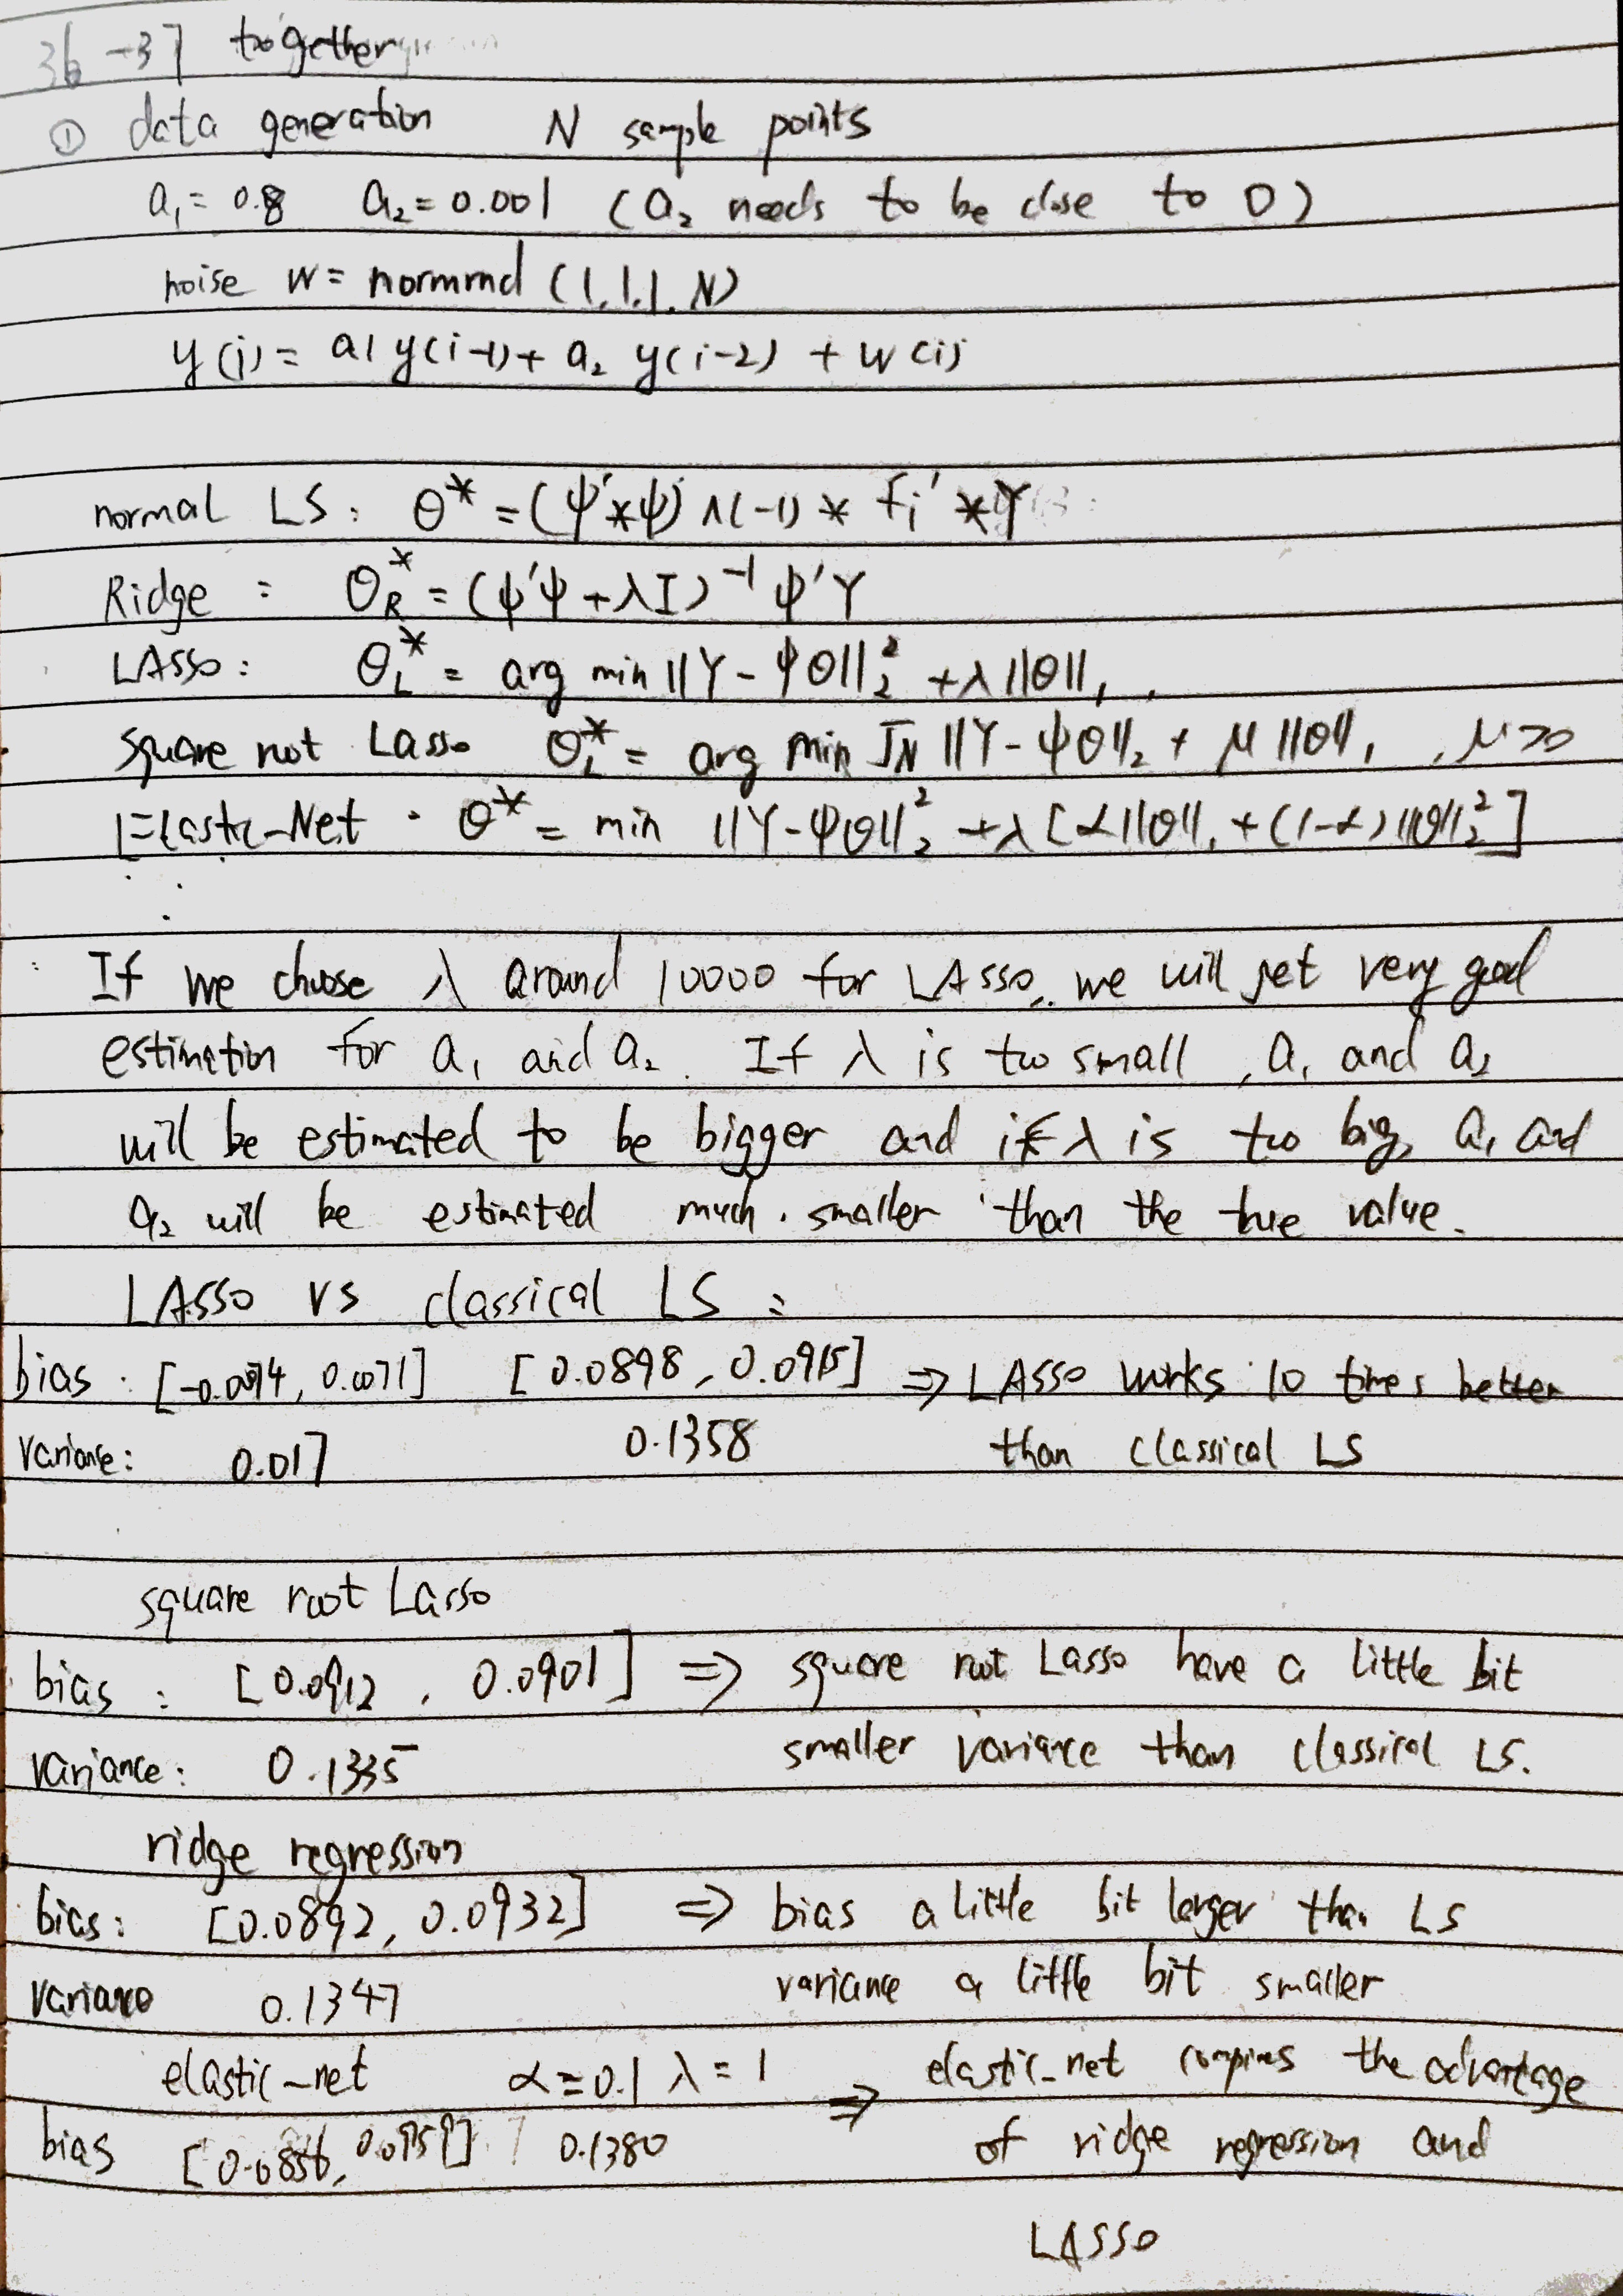 36-37 together
① data generation N sample points
a₁= 0.8 a₂=0.001 (a₂ needs to be close to 0)
noise w= normrnd (1,1,1,N)
y(i)= a1 y(i-1)+ a₂ y(i-2) + w(i)
normal LS: θ* =(ψ'*ψ)^(-1) * fi' *Y
Ridge : θ_R* = (ψ'ψ+λI)⁻¹ ψ'Y
LAsso: θ_L* = arg min ||Y-ψθ||₂² +λ||θ||₁
square root Lasso θ_L* = arg min √N ||Y-ψθ||₂ + μ||θ||₁, μ>0
Elastic-Net: θ* = min ||Y-ψθ||₂² +λ[α||θ||₁+(1-α)||θ||₂²]
If we choose λ around 10000 for LAsso, we will get very good
estimation for a₁ and a₂. If λ is too small, a₁ and a₂
will be estimated to be bigger and if λ is too big, a₁ and
a₂ will be estimated much smaller than the true value.
LAsso vs classical LS :
bias: [ , 0.0071] [0.0898, 0.0915] ⇒ LAsso works 10 times better
variance: 0.017 0.1358 than classical LS
square root Lasso
bias : [0.0912, 0.0901] ⇒ square root Lasso have a little bit
variance: 0.1335 smaller variance than classical LS.
ridge regression
bias: [0.0892, 0.0932] ⇒ bias a little bit larger than LS
variance 0.1347 variance a little bit smaller
elastic-net α=0.1 λ=1 ⇒ elastic-net the advantage
bias [0.0856, ] 0.1380 of ridge regression and
LASSO